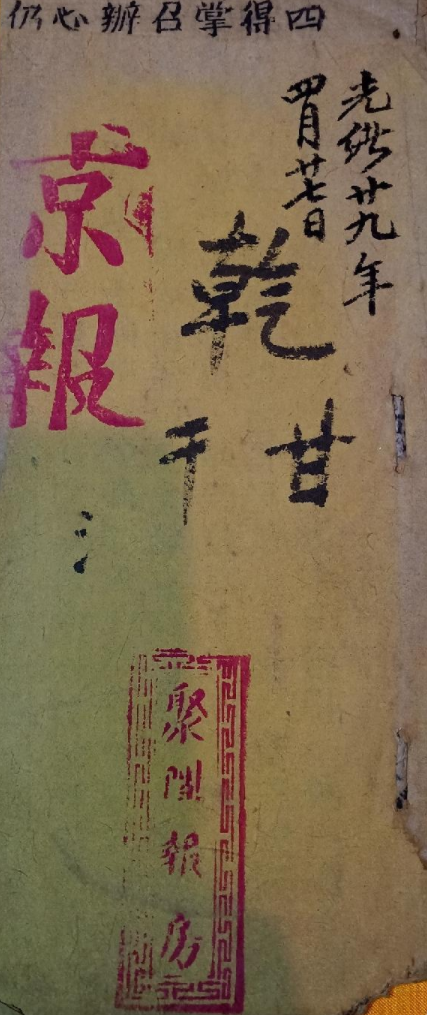 四得掌召辦心仍
光緒廿九年
四月廿七日
乾
甘
干
京報
聚恒報房